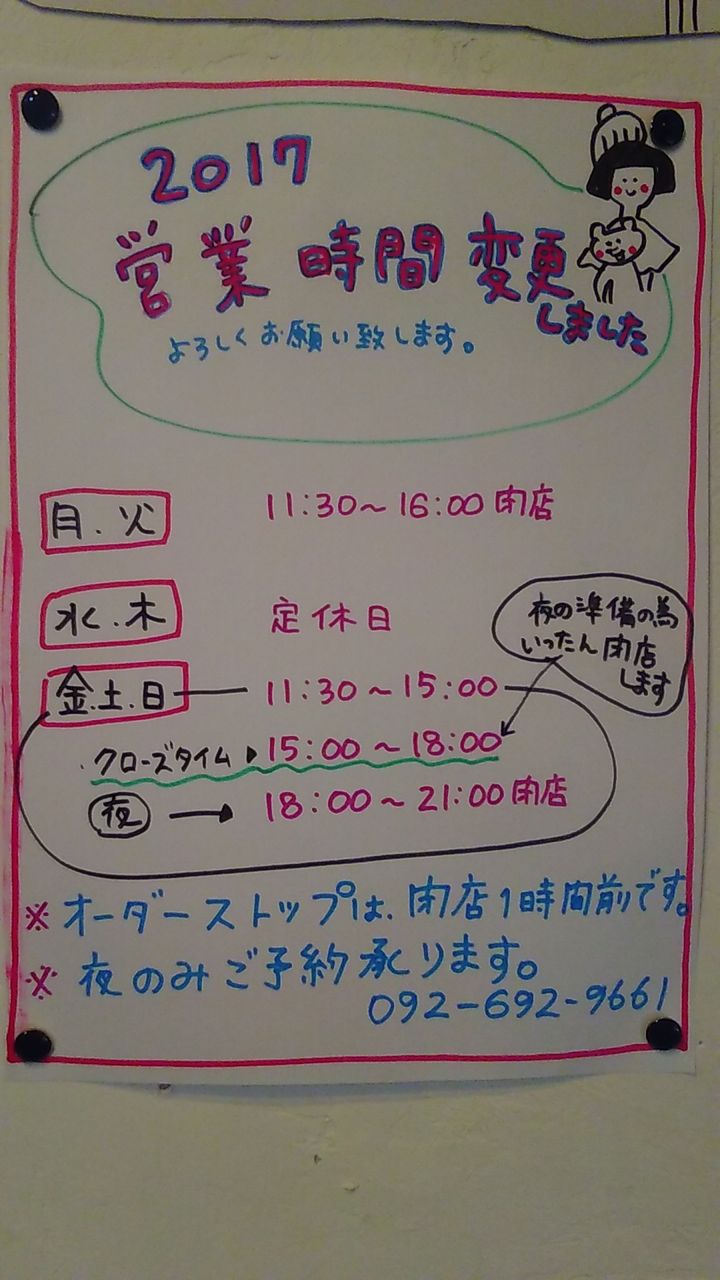 2017
営業時間変更
しました
よろしくお願い致します。
月.火 11:30〜16:00閉店
水.木 定休日
夜の準備の為
いったん閉店
します
金.土.日 11:30〜15:00
クローズタイム▶15:00〜18:00
夜 → 18:00〜21:00閉店
※オーダーストップは、閉店1時間前です。
※夜のみご予約承ります。
092-692-9661